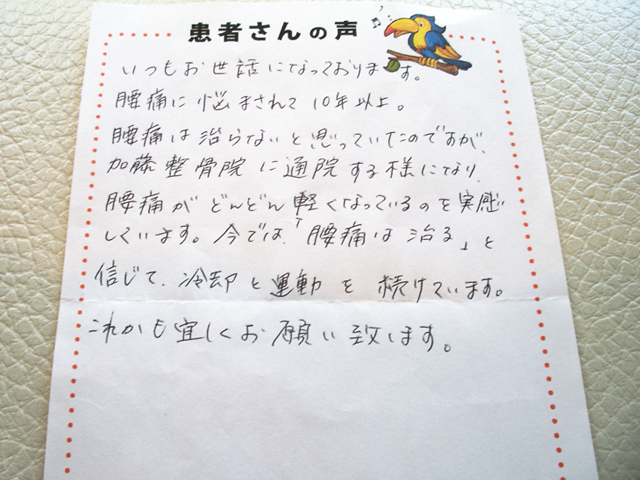 患者さんの声
いつもお世話になっております。
腰痛に悩まされて10年以上。
腰痛は治らないと思っていたのですが、
加藤整骨院に通院する様になり、
腰痛がどんどん軽くなっているのを実感
しています。今では、「腰痛は治る」と
信じて、冷却と運動を続けています。
これからも宜しくお願い致します。